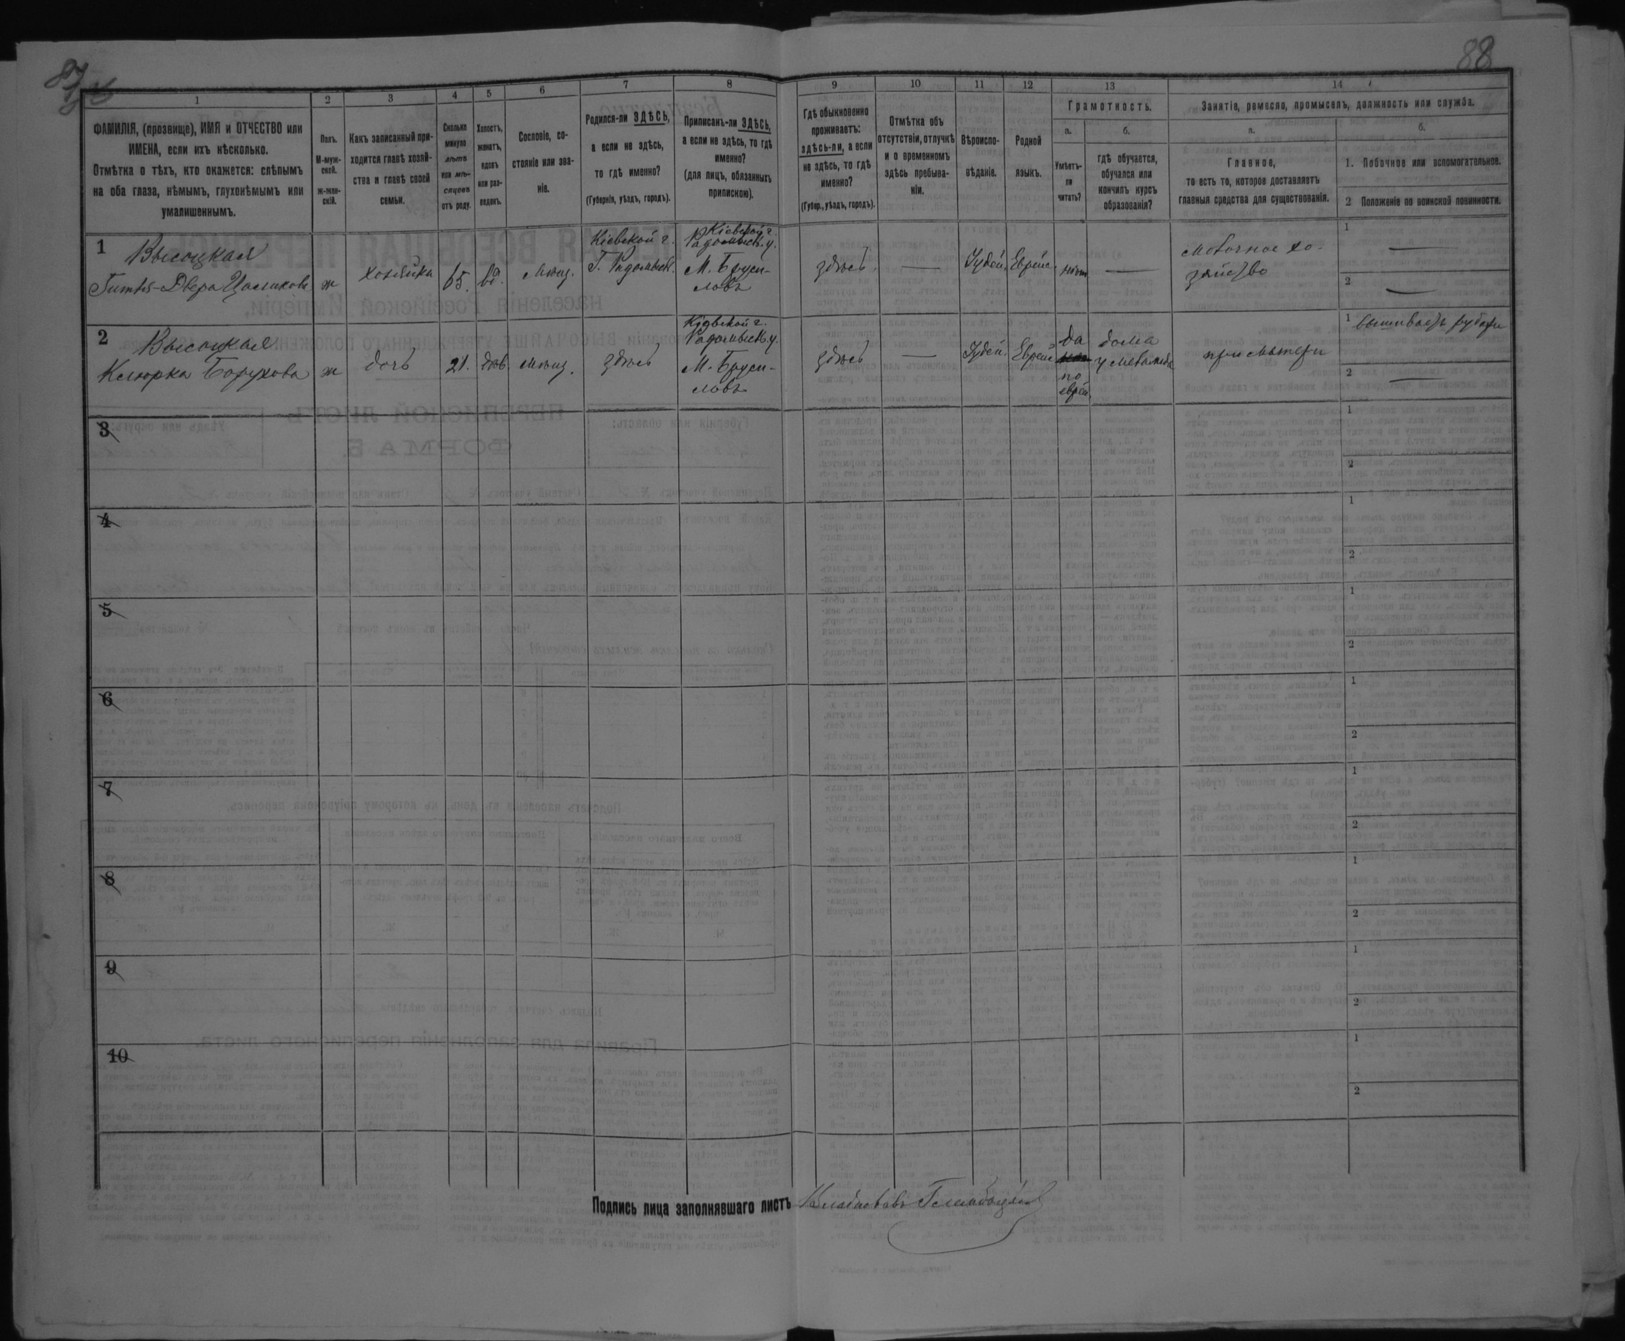 88
1 2 3 4 5 6 7 8 9 10 11 12 13 14
ФАМИЛІЯ, (прозвище), ИМЯ и ОТЧЕСТВО или
ИМЕНА, если ихъ нѣсколько.
Отмѣтка о тѣхъ, кто окажется: слѣпымъ
на оба глаза, нѣмымъ, глухонѣмымъ или
умалишеннымъ.
Полъ.
М-муж-
ской.
ж-жен-
скій.
Какъ записанный при-
ходится главѣ хозяй-
ства и главѣ своей
семьи.
Сколько
минуло
лѣтъ
или мѣ-
сяцевъ
отъ роду.
Холостъ,
женатъ,
вдовъ
или раз-
веденъ.
Сословіе, со-
стояніе или зва-
ніе.
Родился-ли ЗДѢСЬ,
а если не здѣсь,
то гдѣ именно?
(Губернія, уѣздъ, городъ).
Приписанъ-ли ЗДѢСЬ,
а если не здѣсь, то гдѣ
именно?
(для лицъ, обязанныхъ
припискою).
Гдѣ обыкновенно
проживаетъ:
здѣсь-ли, а если
не здѣсь, то гдѣ
именно?
(Губер., уѣздъ, городъ).
Отмѣтка объ
отсутствіи, отлучкѣ
и о временномъ
здѣсь пребыва-
ніи.
Вѣроиспо-
вѣданіе.
Родной
языкъ.
Грамотность.
а.
Умѣетъ-
ли
читать?
б.
гдѣ обучается,
обучался или
кончилъ курсъ
образованія?
Занятіе, ремесло, промыселъ, должность или служба.
а.
Главное,
то есть то, которое доставляетъ
главныя средства для существованія.
б.
1. Побочное или вспомогательное.
2 Положеніе по воинской повинности.
1 Высоцкая
Гитля-Двера
ж
хозяйка
65.
вд.
мѣщ.
Кіевской г.
Г. Радомысл.
Кіевской г.
Радомысл. у.
М. Бруси-
ловъ
здѣсь
—
Іудей.
Еврейс.
нѣтъ
—
хо-
зяйство
1 —
2 —
2 Высоцкая
Борухова
ж
дочь
21.
дѣв.
мѣщ.
здѣсь
Кіевской г.
Радомысл. у.
М. Бруси-
ловъ
здѣсь
—
Іудей.
Еврей
да
по
еврей.
дома
у меламеда
при матери
1 вышиваетъ рубахи
2 —
3
1
2
4
1
2
5
1
2
6
1
2
7
1
2
8
1
2
9
1
2
10
1
2
Подпись лица заполнявшаго листъ